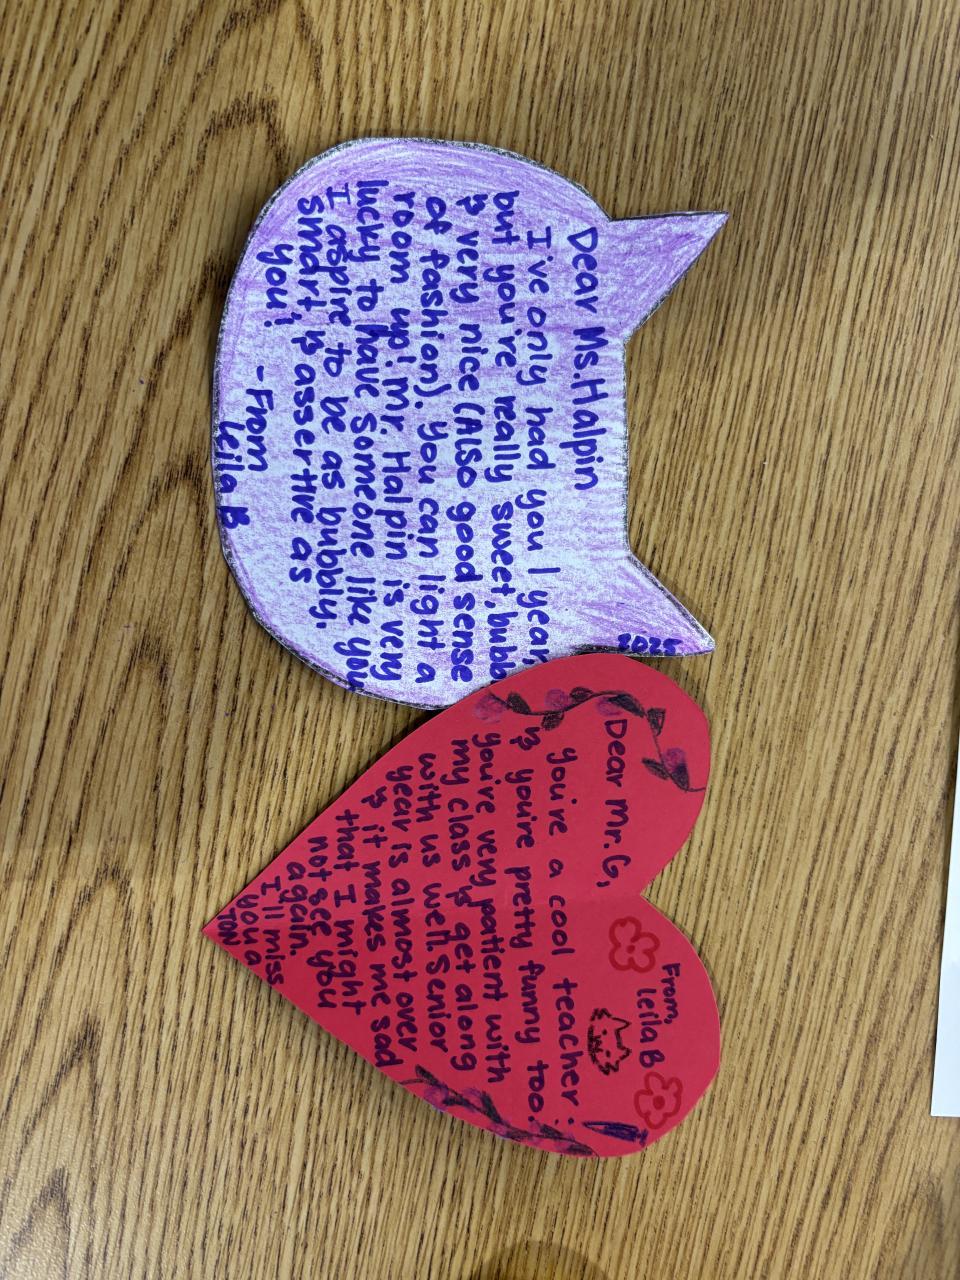 2025
Dear Ms. Halpin
I've only had you 1 year,
but you're really sweet, bubb
& very nice (Also good sense
of fashion). You can light a
room up! Mr. Halpin is very
lucky to have someone like you
I aspire to be as bubbly,
smart, & assertive as
you!
-From
Leila B
From,
Leila B
Dear Mr. G,
You're a cool teacher :)
& you're pretty funny too.
you've very patient with
my class & get along
with us well. Senior
year is almost over
& it makes me sad
that I might
not see you
again.
I'll miss
you a
ton